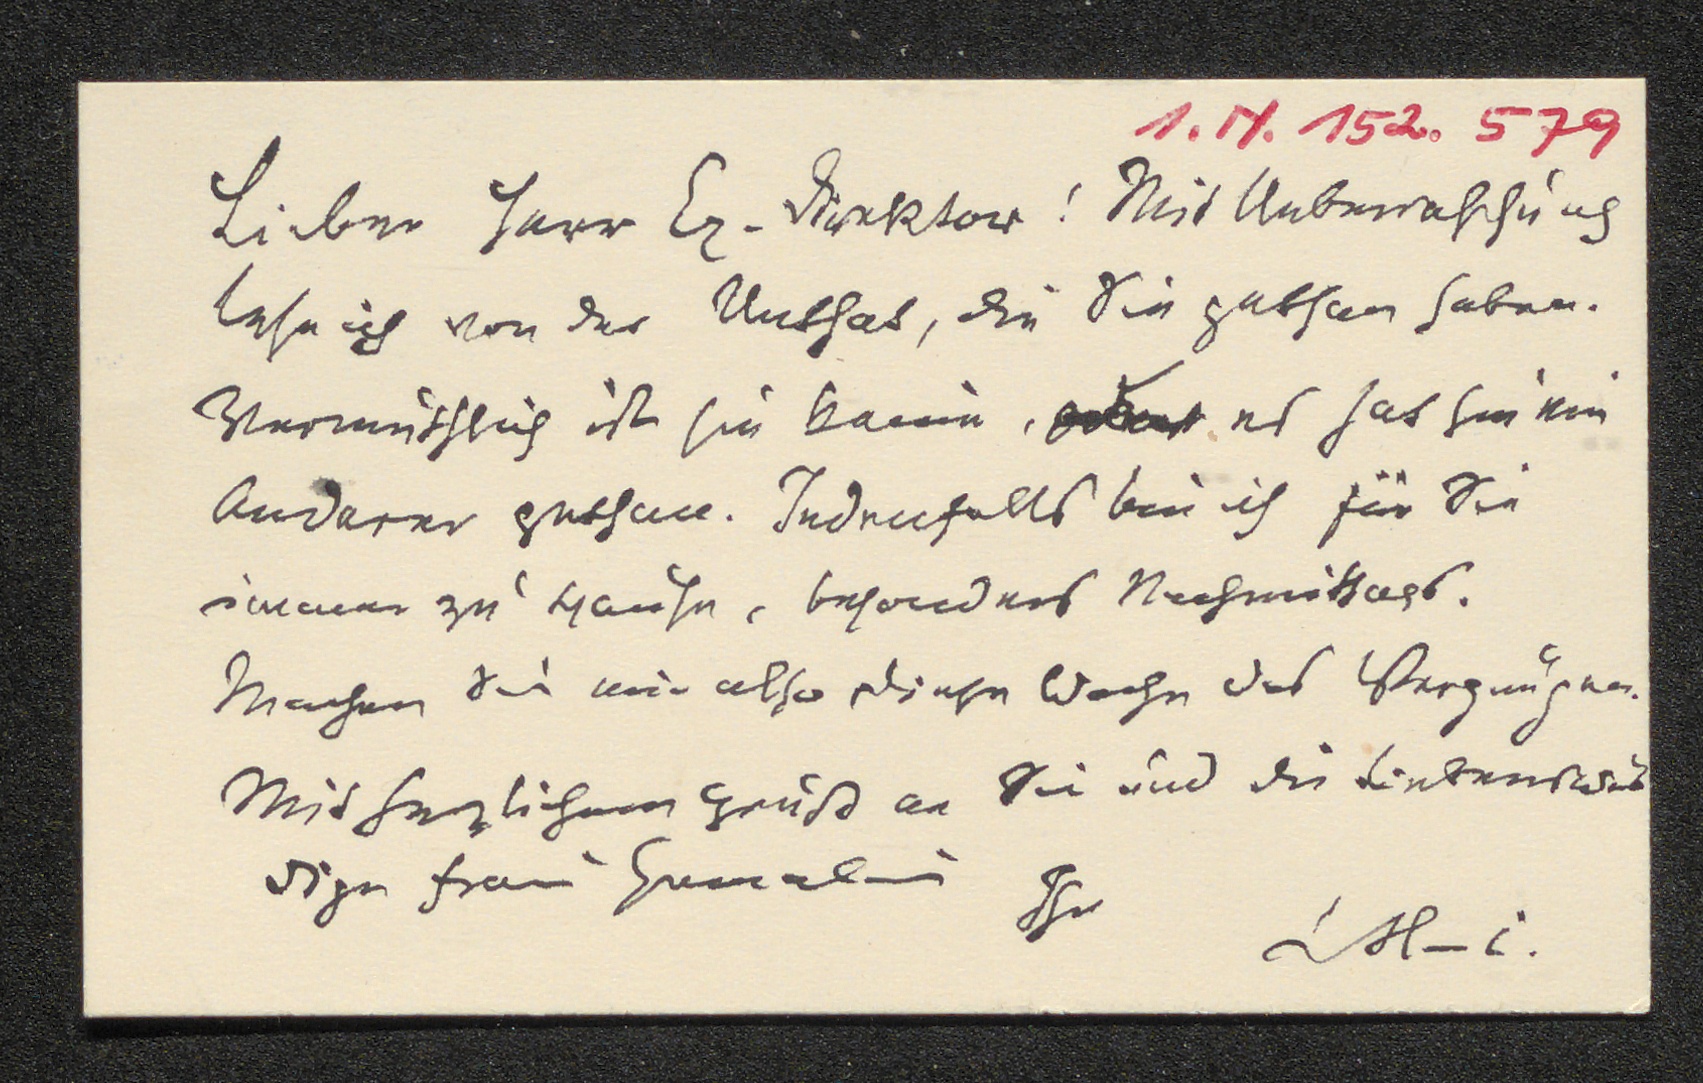 1. N. 152. 579
Lieber Herr Ex-Direktor! Mit Ueberraschung
lese ich von der Unthat, die Sie gethan haben.
Vermuthlich ist sie keine, es hat sie ein
Anderer gethan. Jedenfalls bin ich für Sie
immer zu Hause, besonders Nachmittags.
Machen Sie mir also diese Woche das Vergnügen.
Mit herzlichem Gruß an Sie und die liebenswür
dige Frau Gemalin Ihr